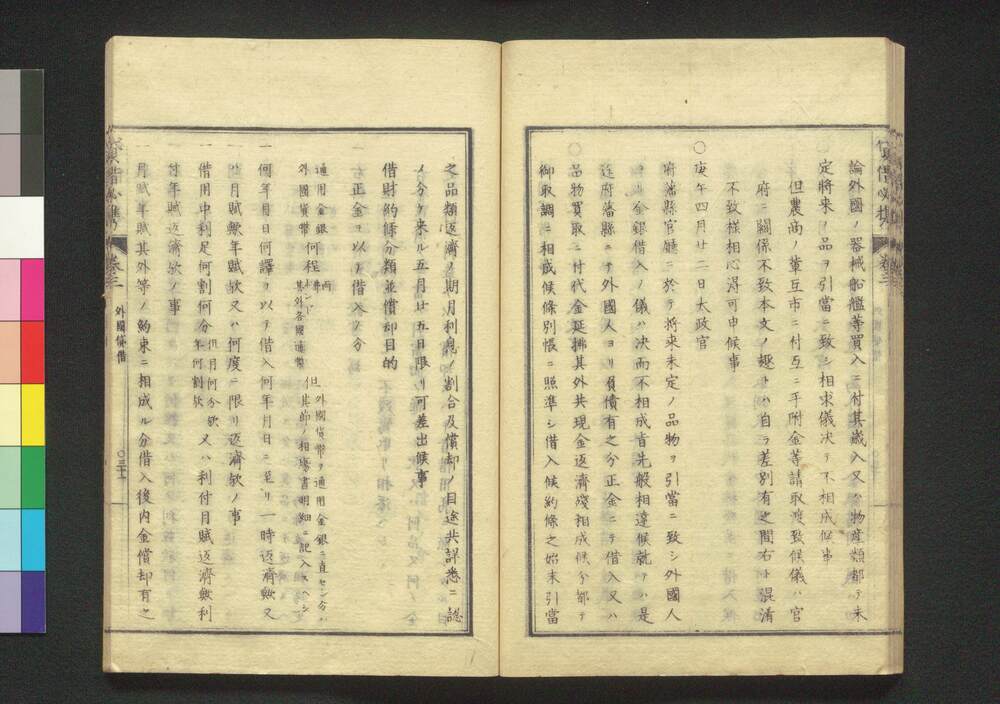 論外國ノ器械船艦等買入ニ付其歲入又ハ物産類都テ未
定將来ノ品ヲ引當ニ致シ相求儀決テ不相成候事
但農商ノ輩互市ニ付互ニ手附金等請取渡致候儀ハ官
府ニ關係不致本文ノ趣トハ自ラ差別有之間右ト混淆
不致様相心得可申候事
〇庚午四月廿二日太政官
府藩縣官廳ニ於テ将来未定ノ品物ヲ引當ニ致シ外國人
ヨリ金銀借入ノ儀ハ決而不相成旨先般相達候就テハ是
迄府藩縣ニテ外國人ヨリ負債有之分正金ニテ借入又ハ
品物買取ニ付代金延拂其外共現金返濟殘相成候分都テ
御取調ニ相成候條別帳ニ照準シ借入候約條之始末引當
之品類返濟ノ期月利息ノ割合及償却ノ目途共詳悉ニ認
メ分ケ来ル五月廿五日限リ可差出候事
借財約條分類並償却目的
一右正金ヲ以テ借入ノ分
通用金銀
外國貨幣
何程
兩
弗
ポンド
其外各國通幣
但外國貨幣ヲ通用金銀ニ直セシ分ハ
其節ノ相場書明細ニ記入スヘシ
一何年月日何譯ヲ以テ借入何年月日ニ至リ一時返濟歟又
ハ月賦歟年賦歟又ハ何度ニ限リ返濟歟ノ事
一借用中利足何割何分
但月何分歟
年何割歟
又ハ利付月賦返濟歟利
付年賦返濟歟ノ事
一月賦年賦其外等ノ約束ニ相成ル分借入後内金償却有之
貸借必携
卷三
外國貸借
〇三十一
貸借必携
卷三